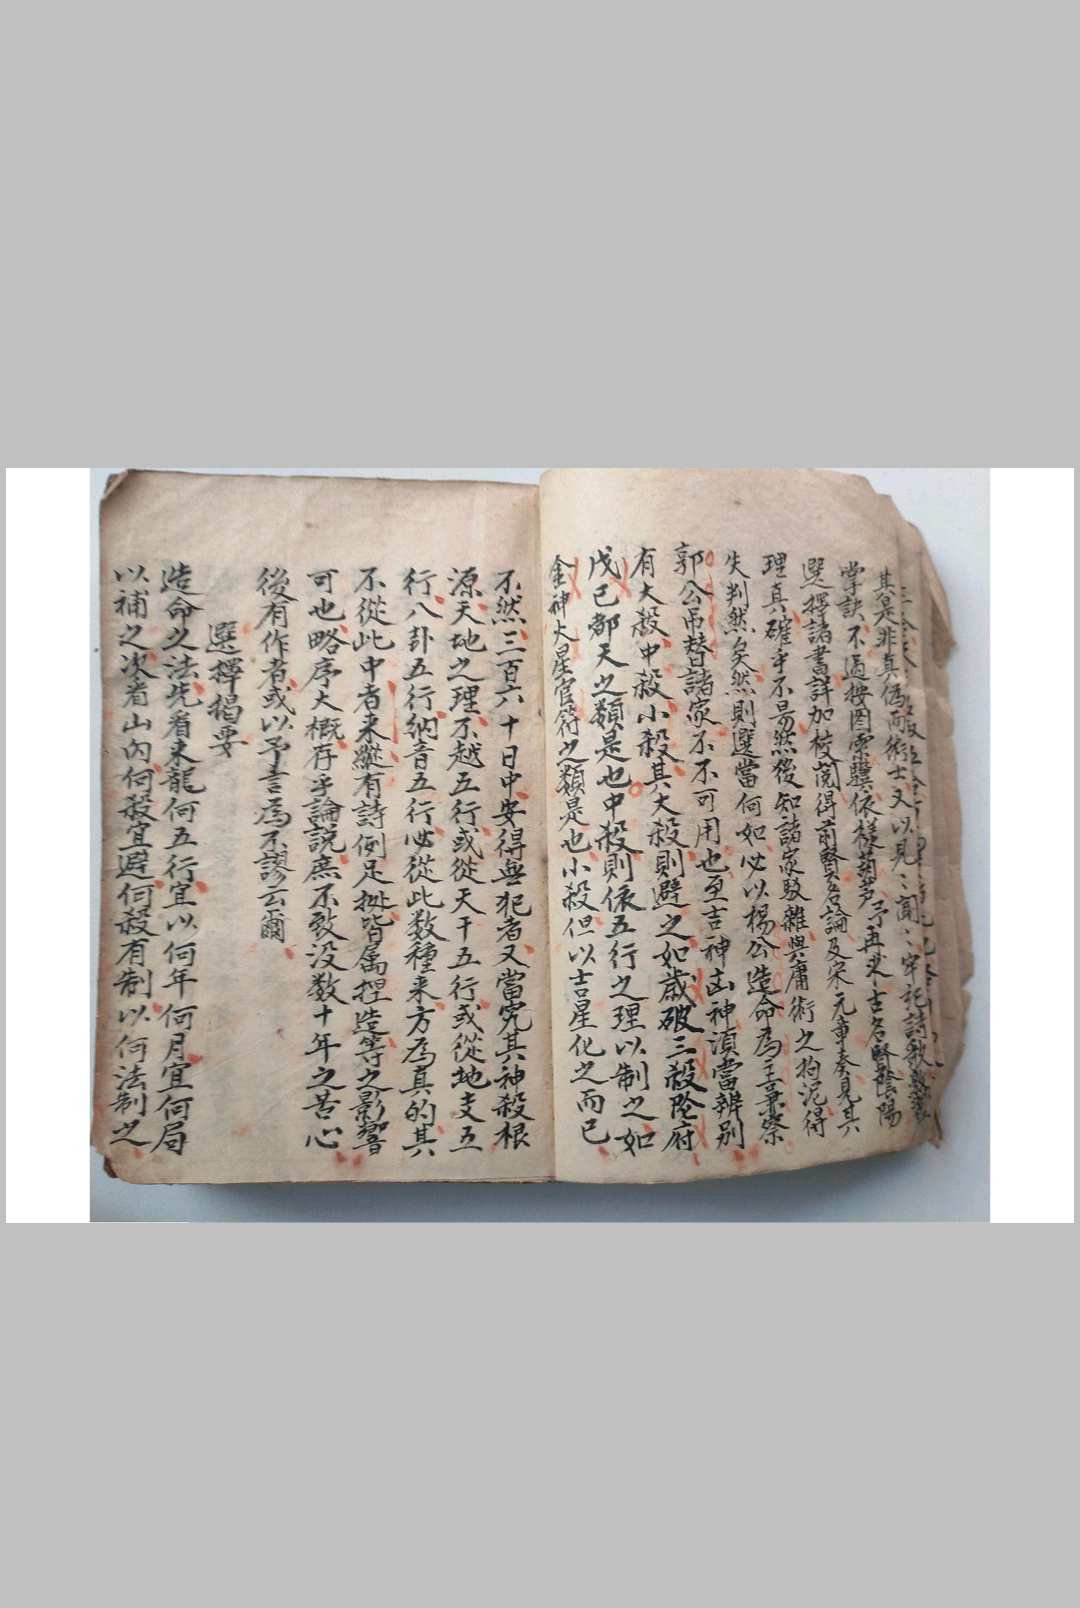 其是非真偽而術士又以見〻聞〻牢記詩歌
掌訣不過按图索驥依樣葫芦予再求古名賢陰陽
選擇諸書詳加校閲得前賢名論及宋元事奏見其
理真確乎不易然後知諸家駁雜與庸術之拘泥得
失判然矣然則選當何如必以楊公造命為主兼察
郭公吊替諸家不不可用也至吉神凶神須當辨别
有大殺中殺小殺其大殺則避之如歲破三殺陰府
戊己都天之類是也中殺則依五行之理以制之如
金神火星官符之類是也小殺但以吉星化之而已
不然三百六十日中安得無犯者又當究其神殺根
源天地之理不越五行或從天干五行或從地支五
行八卦五行納音五行必從此数種来方為真的其
不從此中者来縱有詩例足㨿皆属捏造等之影響
可也略序大概存乎論説庶不致没数十年之苦心
後有作者或以予言為不謬云爾
選擇揭要
造命之法先看来龍何五行宜以何年何月宜何局
以補之次看山内何殺宜避何殺有制以何法制之